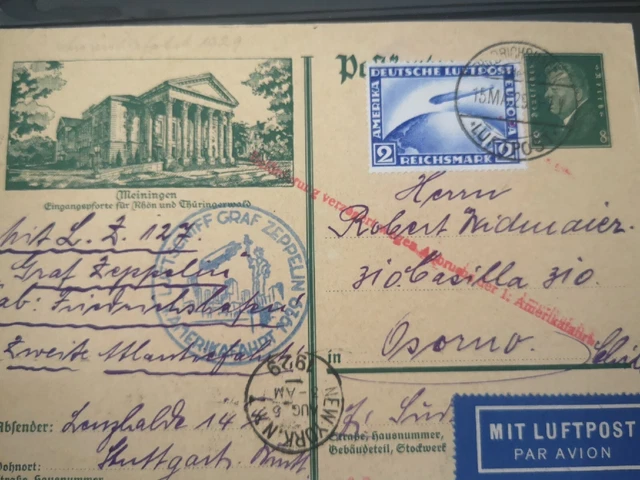 DEUTSCHE LUFTPOST
AMERIKA
EUROPA
2 2
REICHSMARK
8 8
15.MAI.29
LUFTPOST
Meiningen
Eingangspforte für Rhön und Thüringerwald
Beförderung verzögert wegen Abbruchs der 1. Amerikafahrt
LUFTSCHIFF GRAF ZEPPELIN
AMERIKAFAHRT 1929
Herrn
Robert Widmaier.
310 Casilla 310.
in Osorno.
mit L. Z. 127.
"Graf Zeppelin"
ab: Friedrichshafen
Zweite Atlantikfahrt
NEW YORK, N.Y.
AUG 5
1929
Absender: Lenzhalde 14
Wohnort: Stuttgart.
Straße, Hausnummer
Straße, Hausnummer,
Gebäudeteil, Stockwerk
MIT LUFTPOST
PAR AVION